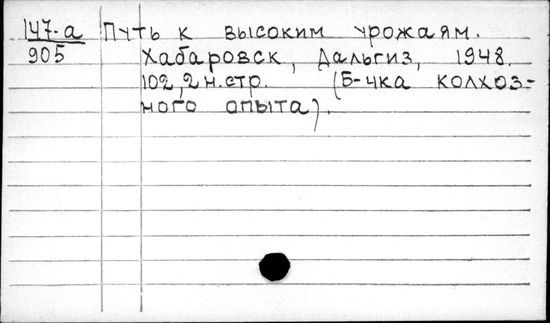 147-а Путь к высоким урожаям.
905 Хабаровск, Дальгиз, 1948.
102,2 н.стр. (Б-чка колхоз-
ного опыта).